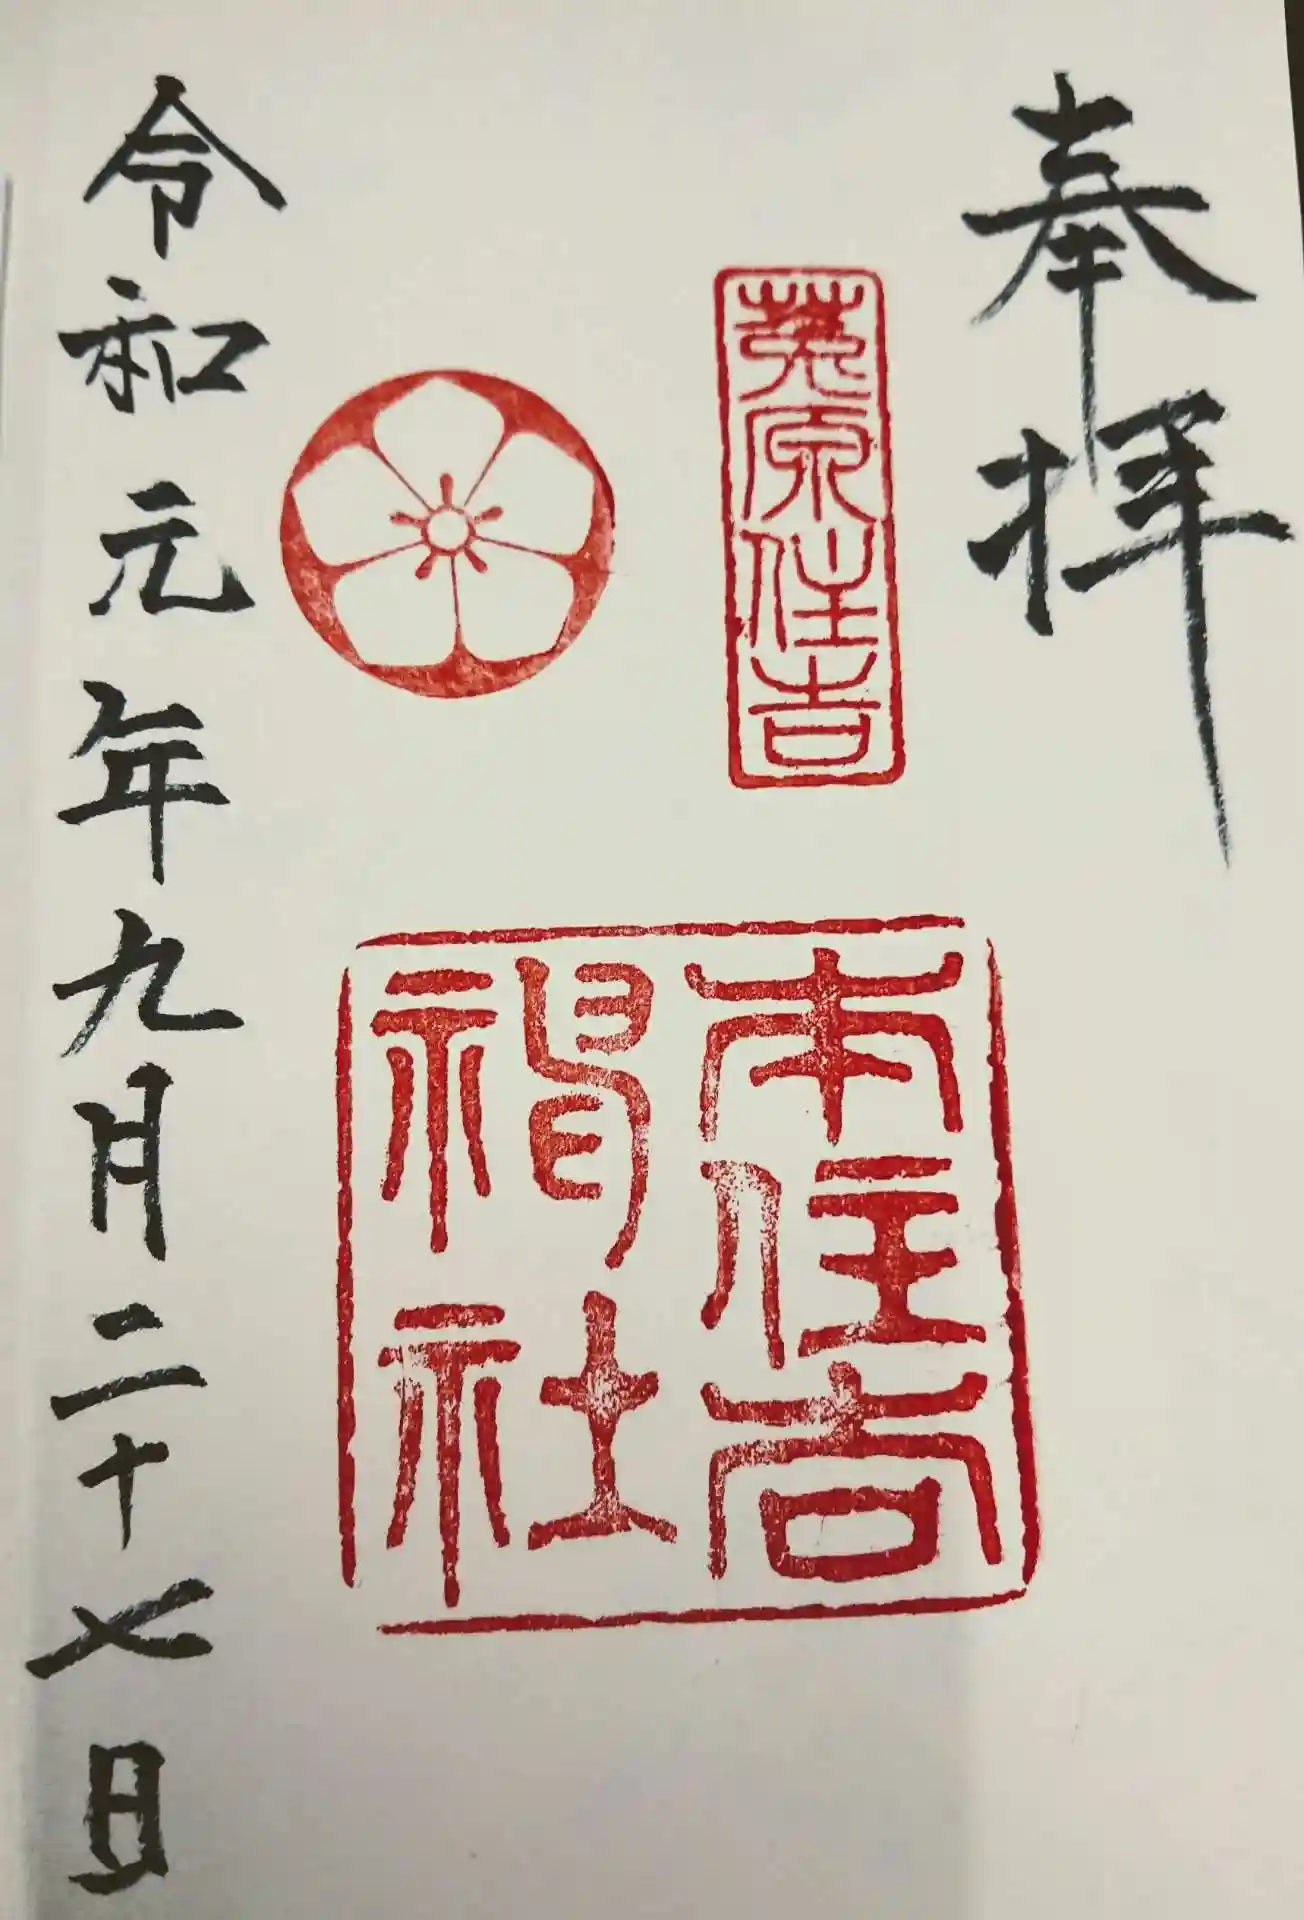 奉拝
莵原住吉
本住吉
神社
令和元年九月二十七日